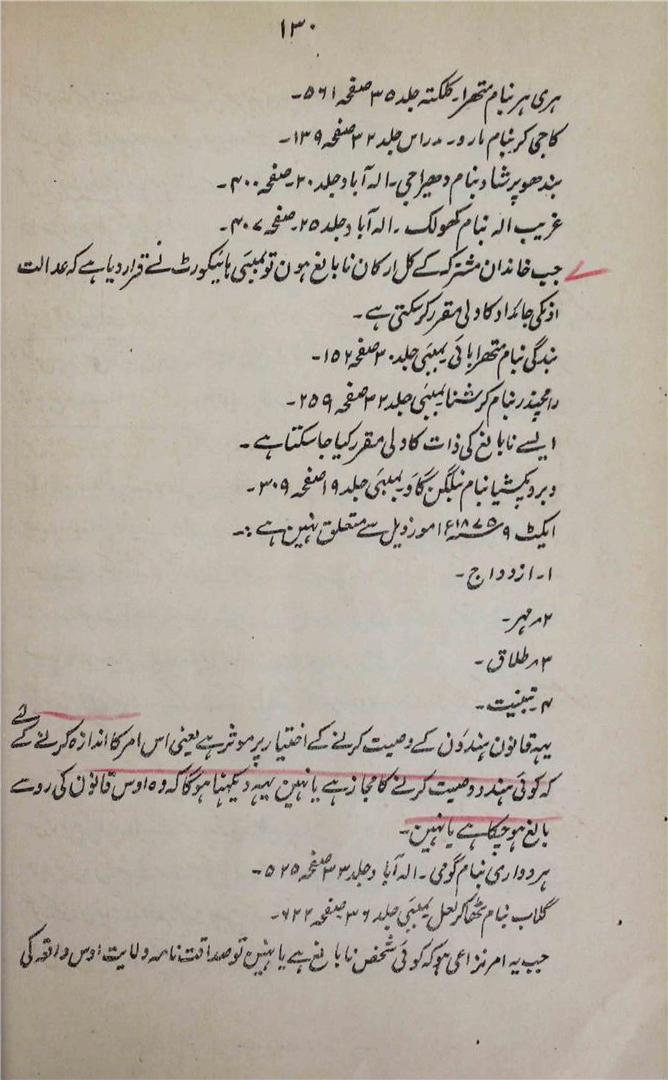 ۱۳۰
ہری ہر بنام متھرا۔ کلکتہ جلد ۳۵ صفحہ ۵۶۱۔
کاجی کر بنام مارو۔ مدراس جلد ۳۲ صفحہ ۱۳۹۔
بندھو پرشاد بنام دھیراجی۔ الہ آباد جلد ۲۰۔ صفحہ ۴۰۰۔
غریب الہ بنام کھولک۔ الہ آباد جلد ۲۵۔ صفحہ ۴۰۷۔
جب خاندان مشترکہ کے کل ارکان نابالغ ہون تو بمبئی ہائیکورٹ نے قرار دیا ہے کہ عدالت
اونکی جائداد کا ولی مقرر کرسکتی ہے۔
بندگی بنام متھرا بائی بمبئی جلد ۳۰ صفحہ ۱۵۲۔
رامچندر بنام کرشنا بمبئی جلد ۳۲ صفحہ ۲۵۹۔
ایسے نابالغ کی ذات کا ولی مقرر کیا جاسکتا ہے۔
بنام نیلگن گاو بمبئی جلد ۱۹ صفحہ ۳۰۹۔
ایکٹ ۹ ۱۸۷۵ء امور ذیل سے متعلق نہین ہے :۔
۱۔ ازدواج۔
۲۔ مہر۔
۳۔ طلاق۔
۴۔ تبنیت۔
یہہ قانون ہندؤن کے وصیت کرنے کے اختیار پر موثر ہے یعنی اس امر کا اندازہ کرنے کے لئے
کہ کوئی ہندو وصیت کرنے کا مجاز ہے یا نہین یہہ دیکھنا ہوگا کہ وہ اوس قانون کی رو سے
بالغ ہوچکا ہے یا نہین۔
ہردواری بنام گومی۔ الہ آباد جلد ۳۳ صفحہ ۵۲۵۔
گلاب بنام ٹھاکر لعل بمبئی جلد ۳۶ صفحہ ۶۲۲۔
جب یہ امر نزاعی ہو کہ کوئی شخص نابالغ ہے یا نہین تو صداقت نامہ ولایت اوس واقعہ کی